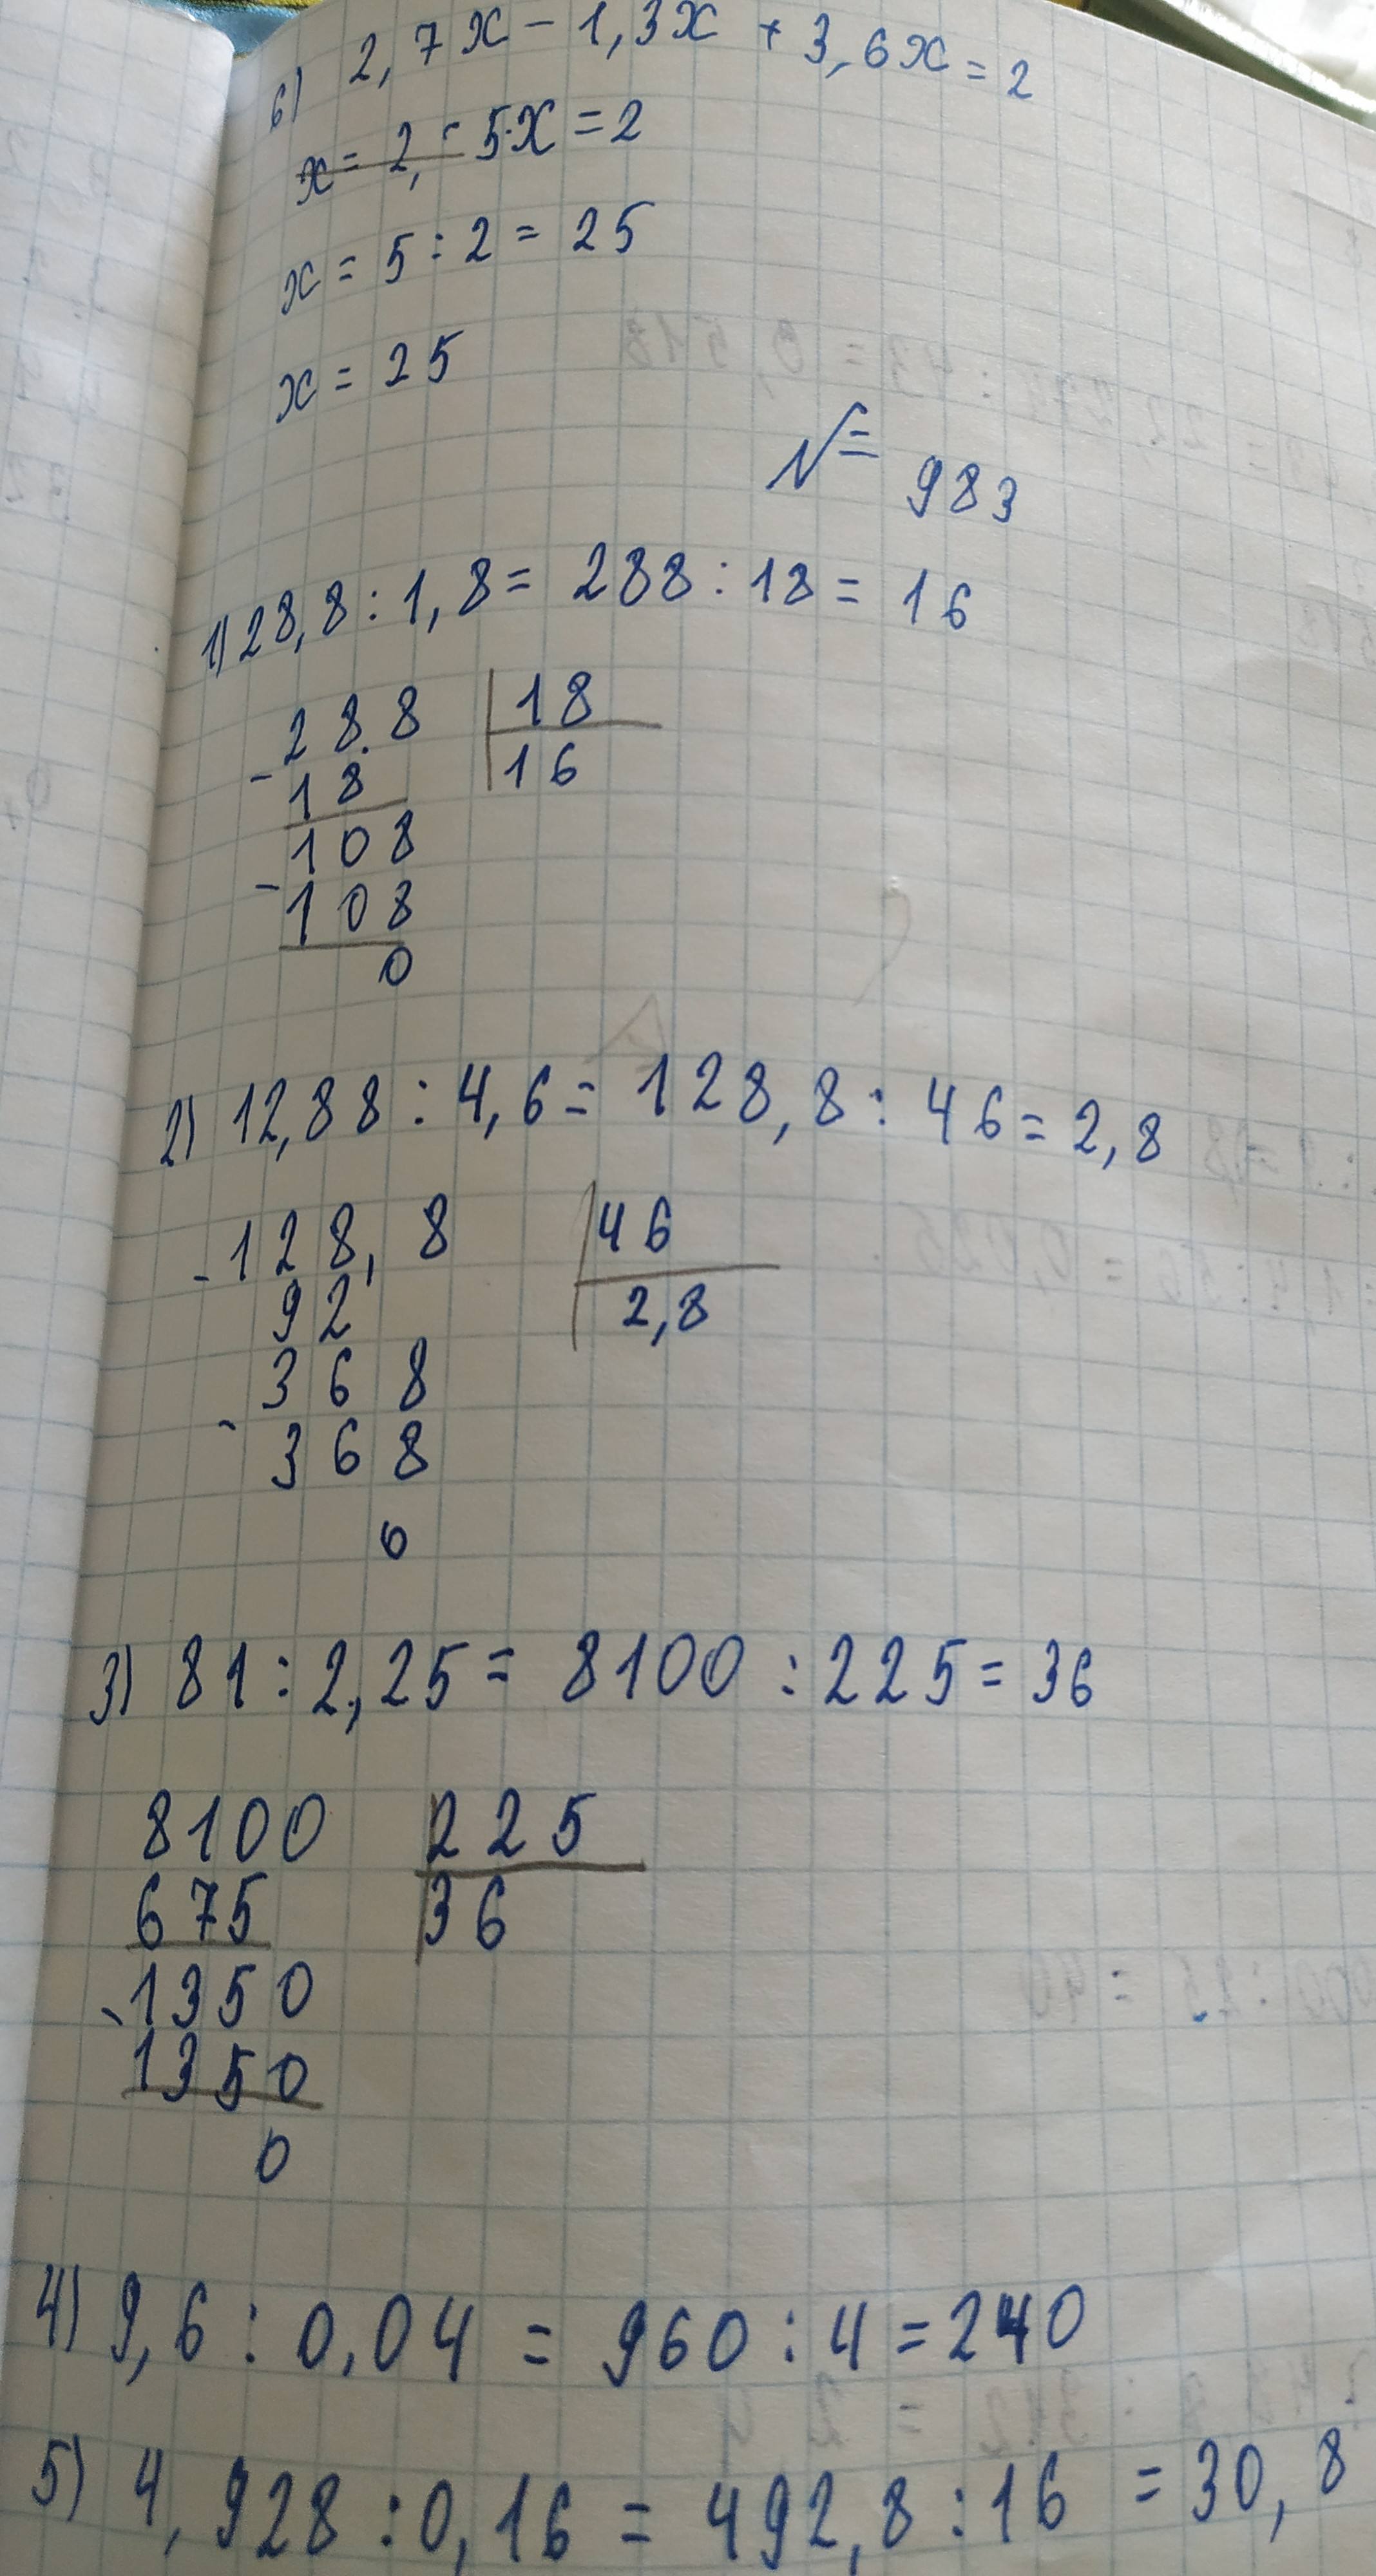 6) 2,7x - 1,3x + 3,6x = 2
x = 2, - 5·x = 2
x = 5 : 2 = 25
x = 25
№ 983
1) 28,8 : 1,8 = 288 : 18 = 16
- 28.8 | 18
18 | 16
- 108
108
0
2) 12,88 : 4,6 = 128,8 : 46 = 2,8
- 128,8 | 46
92 | 2,8
- 368
368
0
3) 81 : 2,25 = 8100 : 225 = 36
8100 | 225
675 | 36
- 1350
1350
0
4) 9,6 : 0,04 = 960 : 4 = 240
5) 4,928 : 0,16 = 492,8 : 16 = 30,8